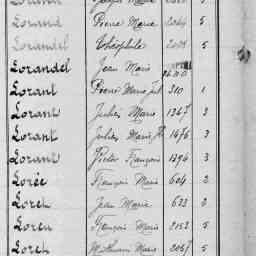 Lorand Pierre Marie 2044 5
Lorandel Théophile 5
Lorandel Jean Marie
Lorant Pierre Marie Jul 310 1
Lorant Julien Marie 1367 3
Lorant Julien Marie 1476 3
Lorant Victor François 1294 3
Lorée François Marie 604 2
Lorch Jean Marie 633 2
François Marie 2152 5
Lorch Mathurin Marie 2067 5